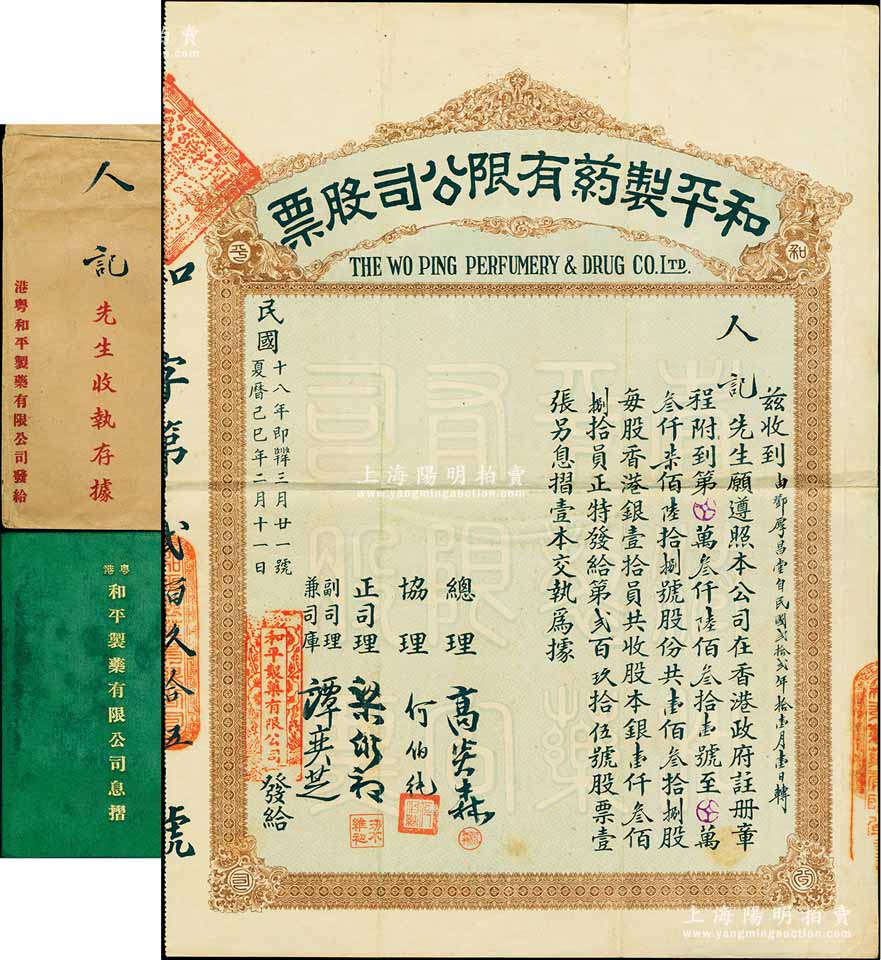 和平製葯有限公司股票
THE WO PING PERFUMERY & DRUG CO. LTD.
和
平
公
司
茲收到
由鄧厚昌堂自民國貳拾貳年拾壹月壹日轉
人記先生願遵照本公司在香港政府註册章
程附到第萬叁仟陸佰叁拾壹號至萬
叁仟柒佰陸拾捌號股份共壹佰叁拾捌股
每股香港銀壹拾員共收股本銀壹仟叁佰
捌拾員正特發給第貳百玖拾伍號股票壹
張另息摺壹本交執爲據
總理
協理 何伯純
正司理
副司理
兼司庫 譚英芝
民國十八年即洋三月廿一號
夏曆己巳年二月十一日
和平製藥有限公司
發給
和字第貳百久拾五號
人記先生收執存據
港粤和平製藥有限公司發給
粤港和平製藥有限公司息摺
上海陽明拍賣
www.yangmingauction.com
上海陽明拍賣
www.yangmingauction.com